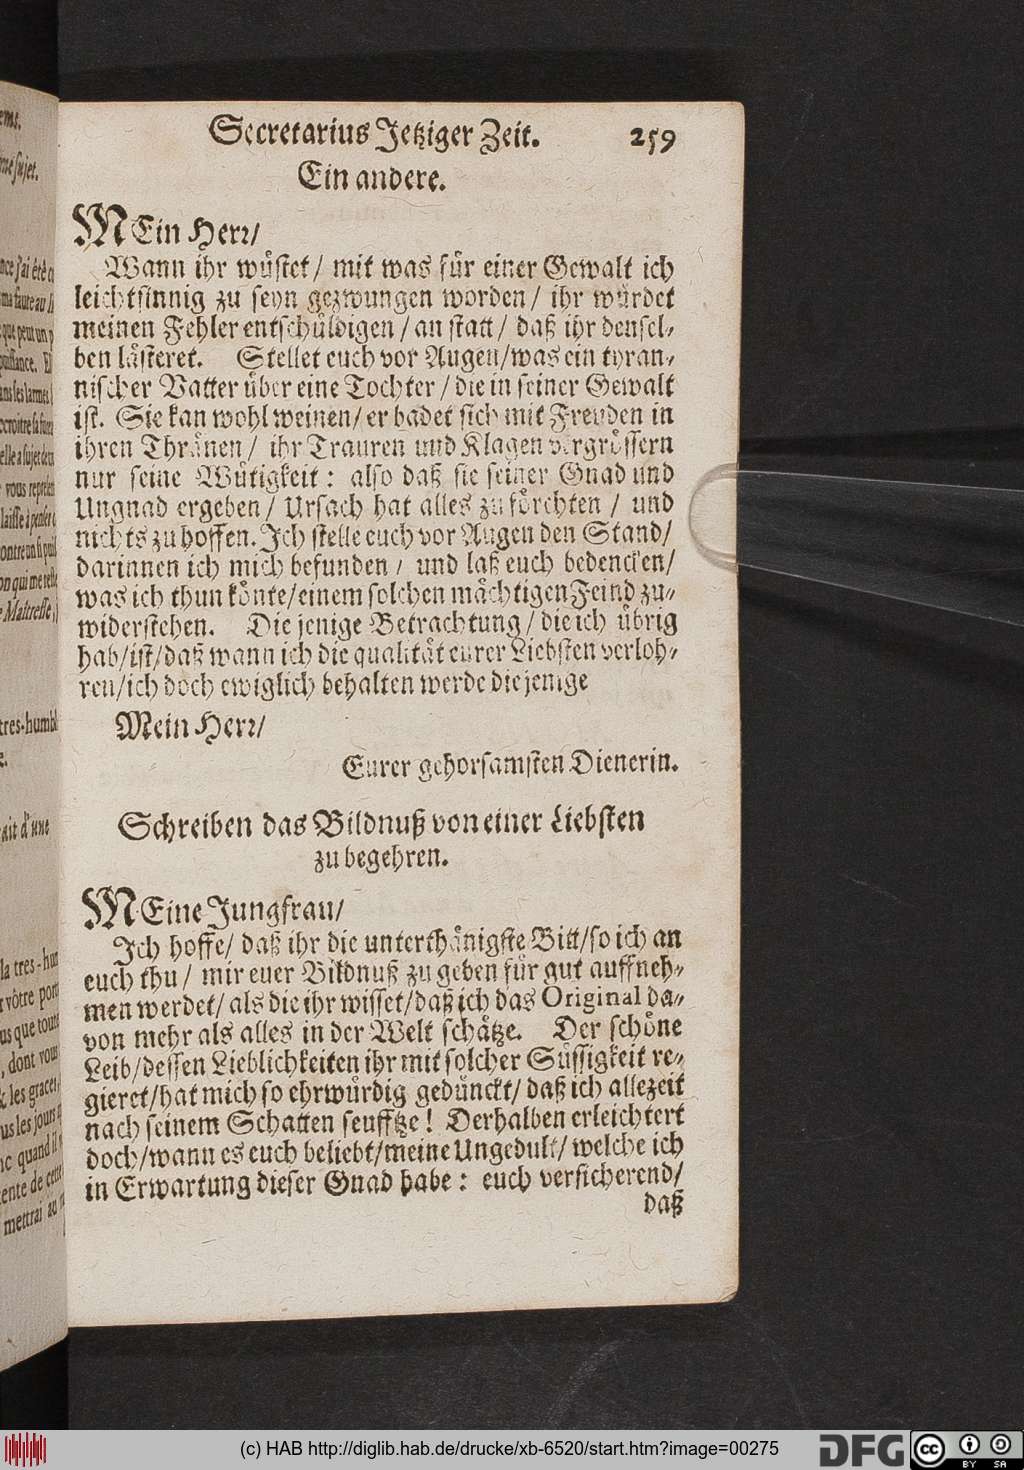 Secretarius Jetziger Zeit. 259
Ein andere.
MEin Herr/
Wann ihr wüstet/ mit was für einer Gewalt ich
leichtsinnig zu seyn gezwungen worden/ ihr würdet
meinen Fehler entschüldigen/ an statt/ daß ihr densel-
ben lästeret. Stellet euch vor Augen/ was ein tyran-
nischer Vatter über eine Tochter/ die in seiner Gewalt
ist. Sie kan wohl weinen/ er badet sich mit Freuden in
ihren Thränen/ ihr Trauren und Klagen vergrössern
nur seine Wütigkeit: also daß sie seiner Gnad und
Ungnad ergeben/ Ursach hat alles zu förchten/ und
nichts zu hoffen. Ich stelle euch vor Augen den Stand/
darinnen ich mich befunden/ und laß euch bedencken/
was ich thun könte/ einem solchen mächtigen Feind zu-
widerstehen. Die jenige Betrachtung/ die ich übrig
hab/ ist/ daß wann ich die qualität eurer Liebsten verloh-
ren/ ich doch ewiglich behalten werde die jenige
Mein Herr/
Eurer gehorsamsten Dienerin.
Schreiben das Bildnuß von einer Liebsten
zu begehren.
MEine Jungfrau/
Ich hoffe/ daß ihr die unterthänigste Bitt/ so ich an
euch thu/ mir euer Bildnuß zu geben für gut auffneh-
men werdet/ als die ihr wisset/ daß ich das Original da-
von mehr als alles in der Welt schätze. Der schöne
Leib/ dessen Lieblichkeiten ihr mit solcher Süssigkeit re-
gieret/ hat mich so ehrwürdig gedünckt/ daß ich allezeit
nach seinem Schatten seufftze! Derhalben erleichtert
doch/ wann es euch beliebt/ meine Ungedult/ welche ich
in Erwartung dieser Gnad habe: euch versicherend/
daß
(c) HAB http://diglib.hab.de/drucke/xb-6520/start.htm?image=00275
DFG
cc BY SA